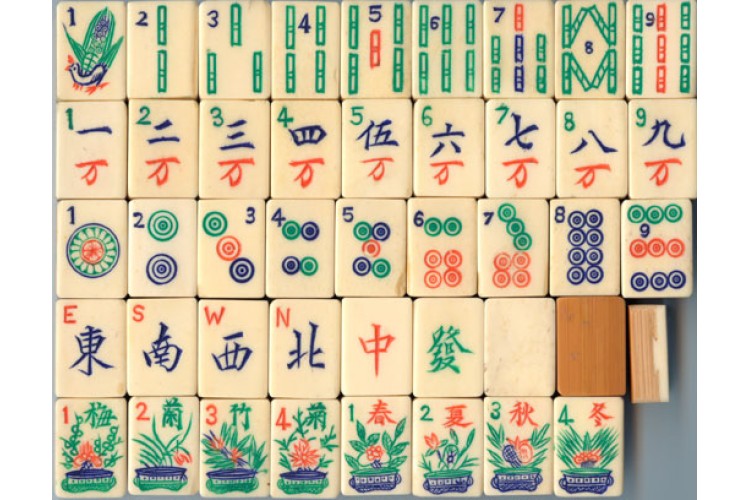 1 2 3 4 5 6 7 8 9
1 2 3 4 5 6 7 8 9
一 二 三 四 伍 六 七 八 九
万 万 万 万 万 万 万 万 万
1 2 3 4 5 6 7 8 9
E S W N
東 南 西 北 中 發
1 梅 2 蘭 3 竹 4 菊 1 春 2 夏 3 秋 4 冬